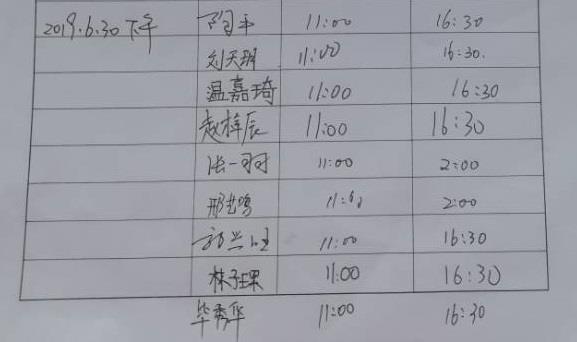 2019.6.30 下午 11:00 16:30
刘天明 11:00 16:30.
温嘉琦 11:00 16:30
赵梓辰 11:00 16:30
张一羽 11:00 2:00
邢 2:00
11:00 16:30
林子琪 11:00 16:30
毕秀华 11:00 16:30